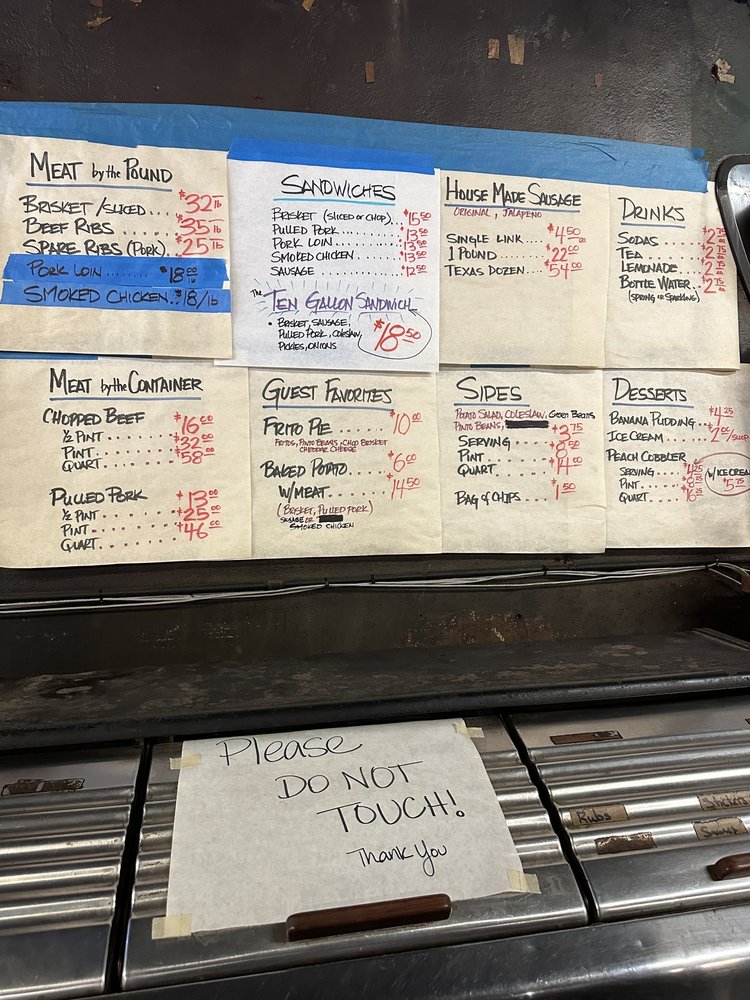 MEAT by the POUND
BRISKET/SLICED.... $32 lb
BEEF RIBS ........ $35 lb
SPARE RIBS (PORK). $25 lb
PORK LOIN ...... $18 00 lb
SMOKED CHICKEN.. $18/lb
SANDWICHES
BRISKET (SLICED OR CHOP).. $15 50
PULLED PORK ........ $13 50
PORK LOIN ......... $13 50
SMOKED CHICKEN ..... $13 50
SAUSAGE ........... $12 50
The TEN GALLON SANDWICH
• BRISKET, SAUSAGE,
PULLED PORK, COLESLAW,
PICKLES, ONIONS
$18 50
HOUSE MADE SAUSAGE
ORIGINAL, JALAPENO
SINGLE LINK .... $4 50 ea
1 POUND ....... $22 00
TEXAS DOZEN .... $54 00
DRINKS
SODAS ....... $2 75
TEA ......... $2 75
LEMONADE .... $2 75
BOTTLE WATER. $2 75
(SPRING OR SPARKLING)
MEAT by the CONTAINER
CHOPPED BEEF
1/2 PINT ....... $16 00
PINT ........ $32 00
QUART ....... $58 00
PULLED PORK
1/2 PINT ....... $13 00
PINT ........ $25 00
QUART ....... $46 00
GUEST FAVORITES
FRITO PIE ..... $10 00
FRITOS, PINTO BEANS, CHOP BRISKET
CHEDDAR CHEESE
BAKED POTATO..... $6 00
W/MEAT....... $14 50
(BRISKET, PULLED PORK)
SAUSAGE OR
SMOKED CHICKEN
SIDES
POTATO SALAD, COLESLAW, GREEN BEANS
PINTO BEANS,
SERVING ...... $3 75
PINT ........ $8 50
QUART ....... $14 00
BAG of CHIPS .... $1 50
DESSERTS
BANANA PUDDING. $4 25
ICE CREAM.... $2 00/SCOOP
PEACH COBBLER
SERVING .... $4 25
PINT ....... $8 75
QUART ...... $16 25
W/ICE CREAM
$5 75
Please
DO NOT
TOUCH!
Thank You
Rubs
Stickers